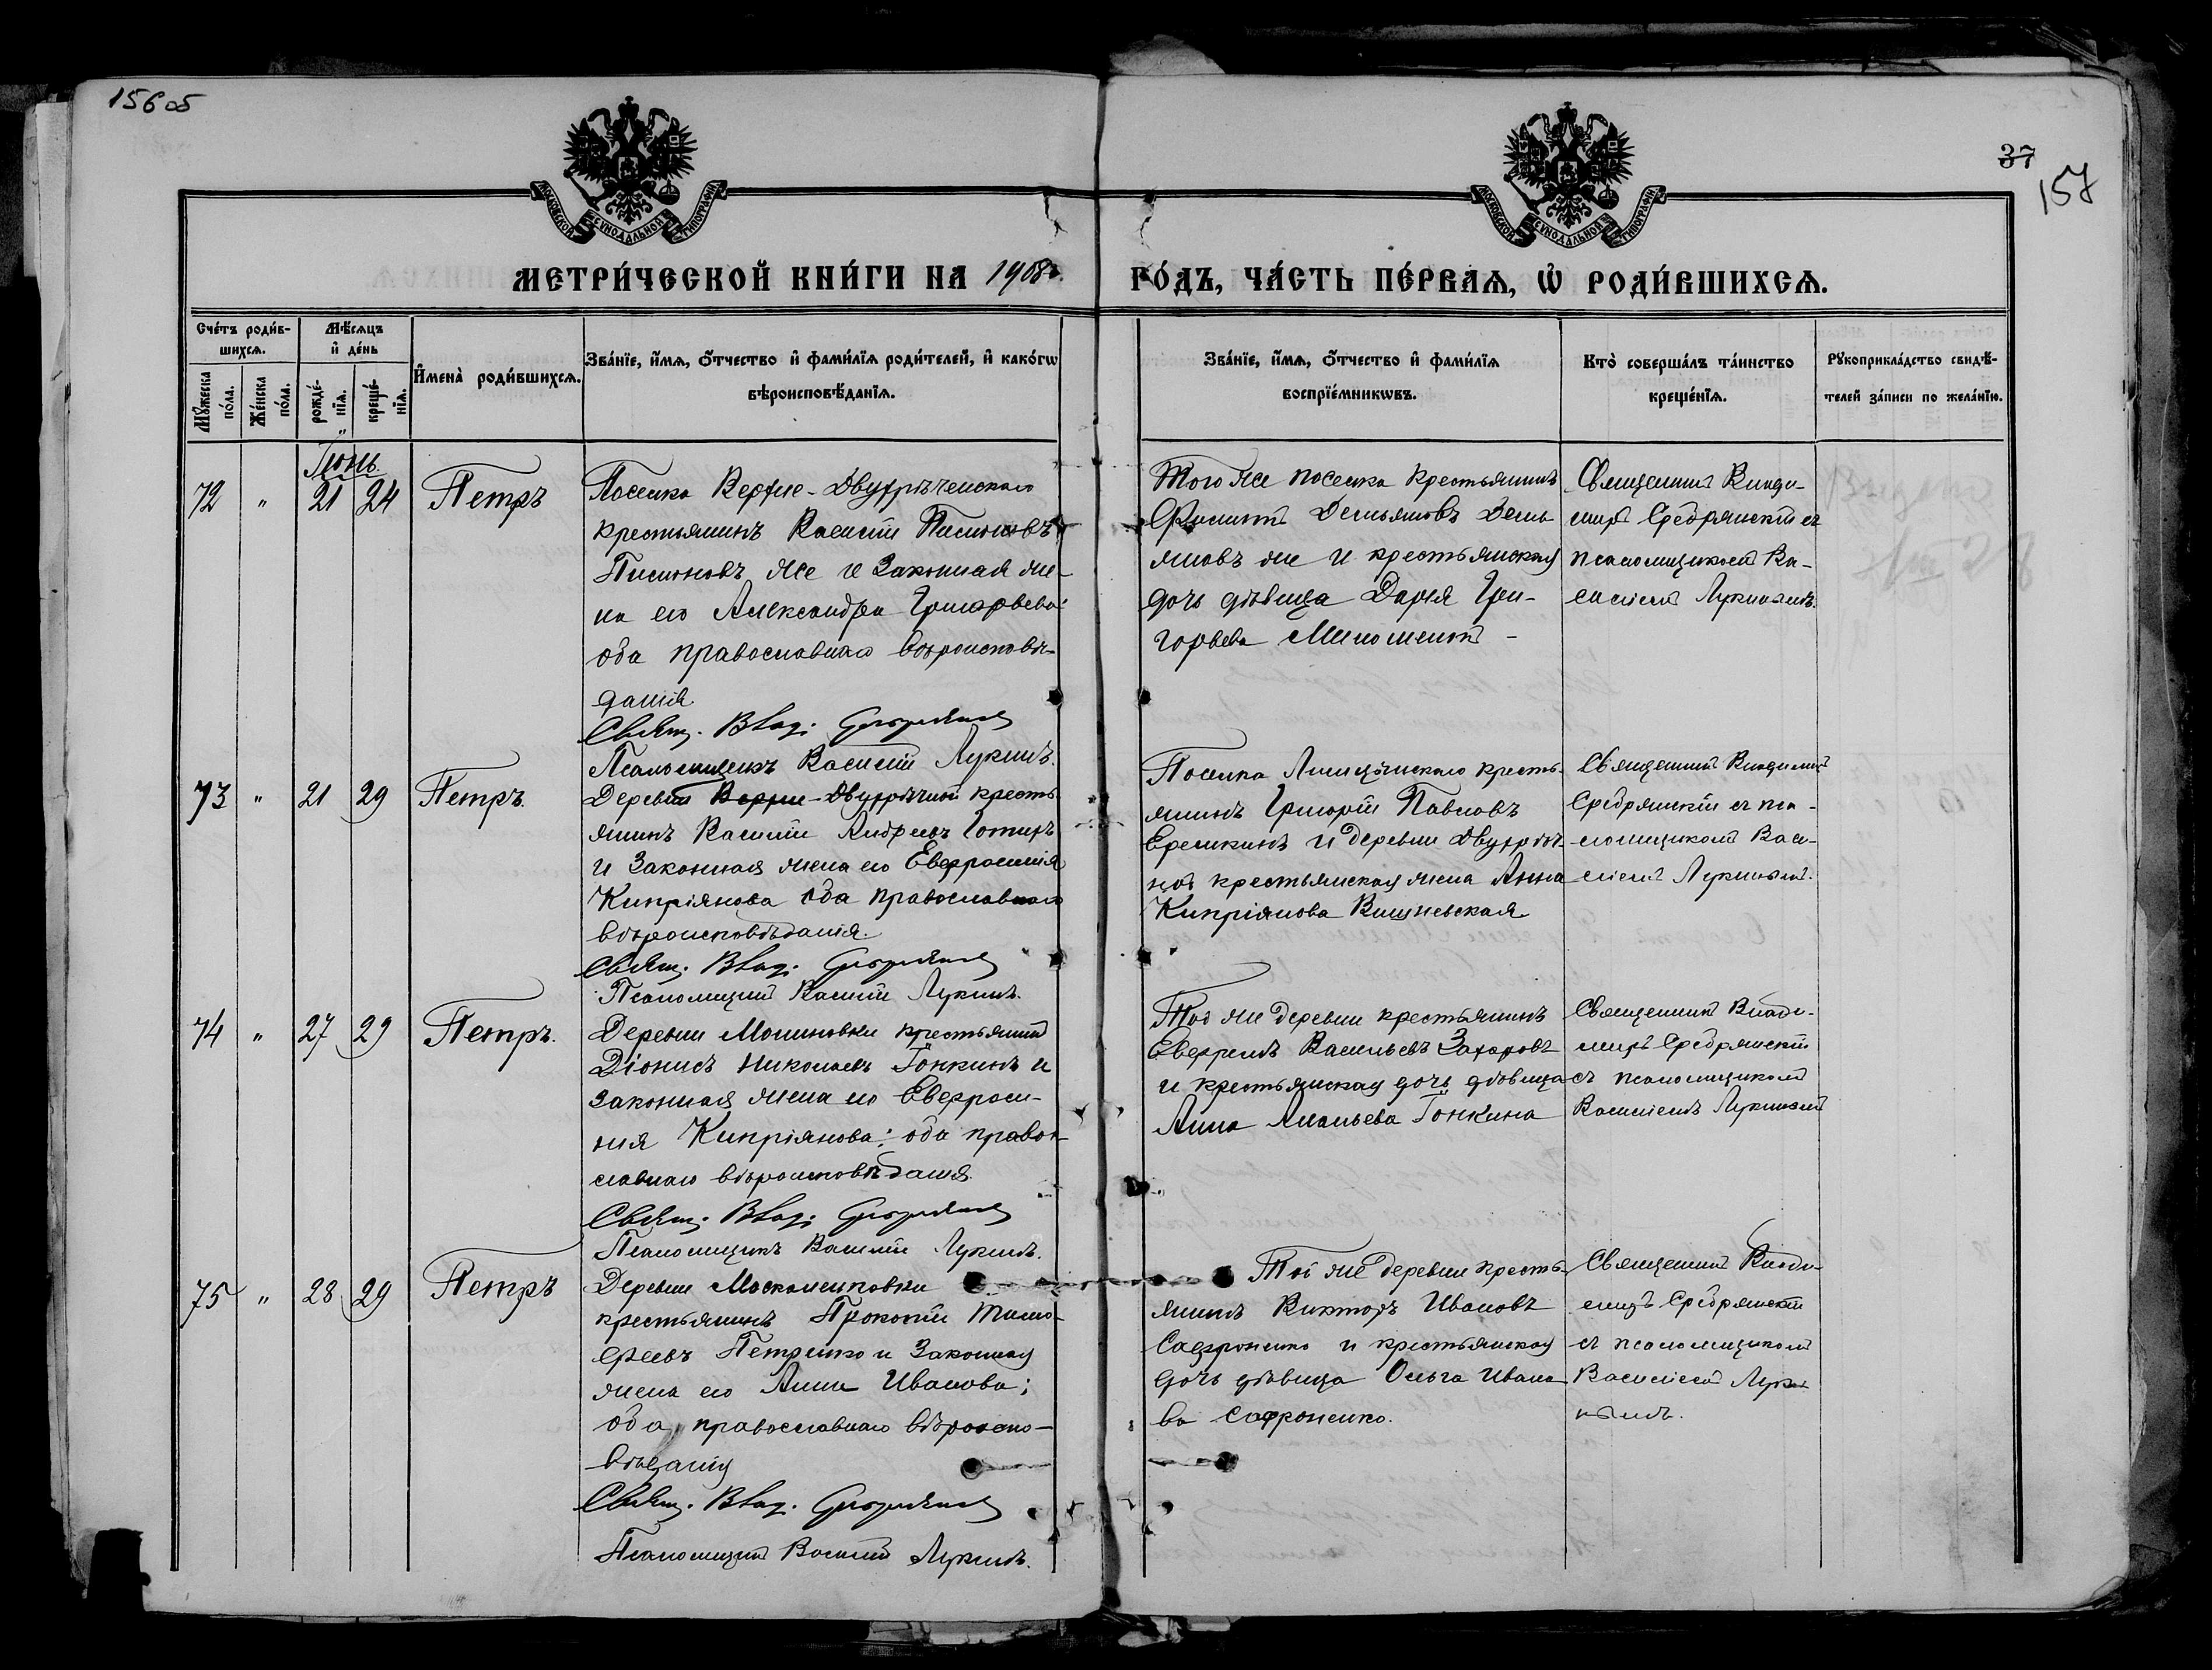 156 об
37
157
МОСКОВСКОЙ СѴНОДАЛЬНОЙ ТИПОГРАФІИ
МОСКОВСКОЙ СѴНОДАЛЬНОЙ ТИПОГРАФІИ
МЕТРИ́ЧЕСКОЙ КНИ́ГИ НА 1908 г.
ГО́ДЪ, ЧА́СТЬ ПЕ́РВАѦ, Ѡ РОДИ́ВШИХСѦ.
Сче́тъ роди́в-
шихсѧ.
Мꙋ́жеска
по́ла.
Же́нска
по́ла.
Мѣ́сѧцъ
и҆ де́нь
рожде́-
нїѧ.
креще́-
нїѧ.
И҆мена̀ роди́вшихсѧ.
Зва́нїе, и҆́мѧ, о҆́тчество и҆ фами́лїѧ роди́телей, и҆ како́гѡ
вѣроисповѣ́данїѧ.
Зва́нїе, и҆́мѧ, о҆́тчество и҆ фами́лїѧ
воспрїе́мникѡвъ.
Кто̀ соверша́лъ та́инство
креще́нїѧ.
Рꙋкоприкла́дство свидѣ́-
телей за́писи по жела́нїю.
Іюнь.
72 " 21 24 Петръ
Поселка Верхне-Двухрѣченскаго
крестьянинъ Василій
же и законная же-
на его Александра Григорьева:
оба православнаго вѣроисповѣ-
данія
Свящ. Влад. Сребрянскій
Псаломщикъ Василій Лукинъ.
Того же поселка крестьянинъ
Филиппъ Демьяновъ Демь-
яновъ же и крестьянская
дочь дѣвица Дарія Гри-
горьева
Священникъ Влади-
миръ Сребрянскій съ
псаломщикомъ Ва-
силіемъ Лукинымъ.
73 " 21 29 Петръ.
Деревни Верхне-Двухрѣчной кресть-
янинъ Василій Андреевъ
и законная жена его Евфросинія
Кипріянова оба православнаго
вѣроисповѣданія.
Свящ. Влад. Сребрянскій
Псаломщикъ Василій Лукинъ.
Поселка крестья-
янинъ Григорій Павловъ
Еремкинъ и деревни Двухрѣч-
ной крестьянская жена Анна
Кипріянова Вишневская
Священникъ Владиміръ
Сребрянскій съ пса-
ломщикомъ Васи-
ліемъ Лукинымъ.
74 " 27 29 Петръ.
Деревни Малиновки крестьянинъ
Діонисъ Николаевъ Гонкинъ и
законная жена его Евфроси-
нія Кипріянова; оба право-
славнаго вѣроисповѣданія.
Свящ. Влад. Сребрянскій
Псаломщикъ Василій Лукинъ.
Той же деревни крестьянинъ
Евфремъ Васильевъ Захаровъ
и крестьянская дочь дѣвица
Анна Ананьева Гонкина
Священникъ Влади-
миръ Сребрянскій
съ псаломщикомъ
Василіемъ Лукинымъ
75 " 28 29 Петръ
Деревни Москаленковки
крестьянинъ Прокопій Тимо-
феевъ Петренко и законная
жена его Анна Иванова;
оба православнаго вѣроиспо-
вѣданія
Свящ. Влад. Сребрянскій
Псаломщикъ Василій Лукинъ.
Той же деревни кресть-
янинъ Викторъ Ивановъ
Сафроненко и крестьянская
дочь дѣвица Ольга Ивано-
ва Сафроненко.
Священникъ Влади-
миръ Сребрянскій
съ псаломщикомъ
Василіемъ Луки-
нымъ.